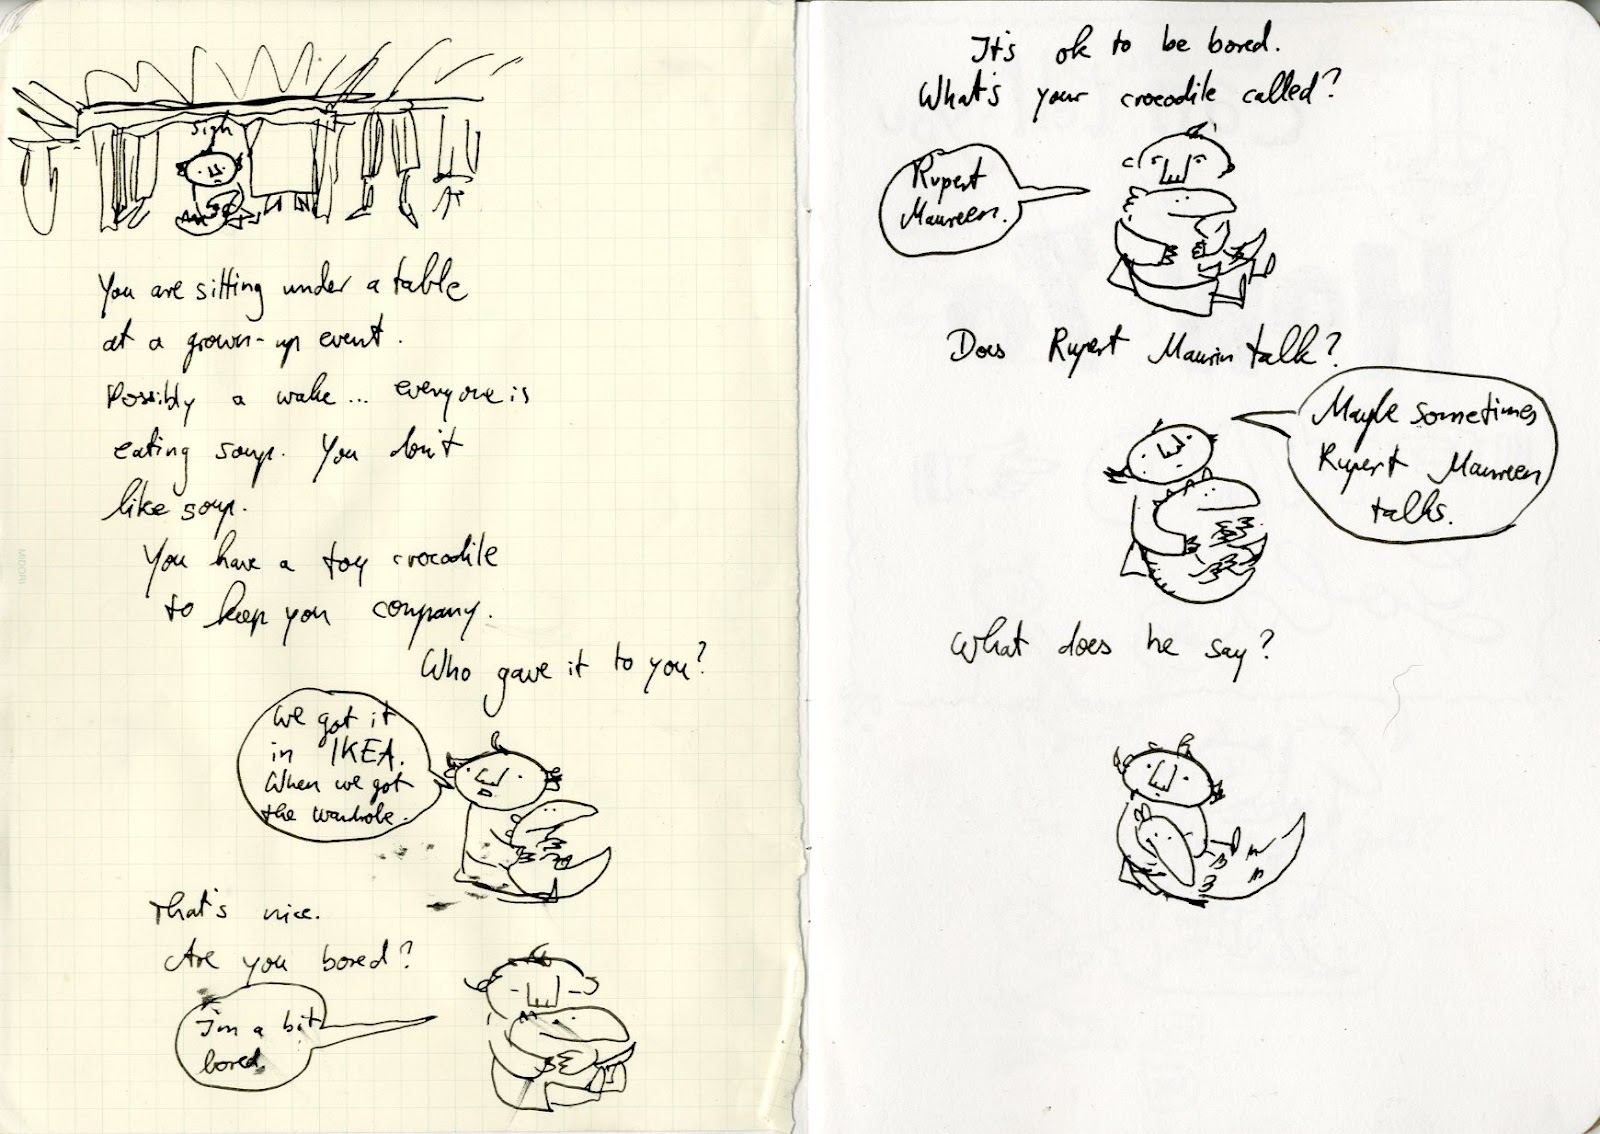 sigh
You are sitting under a table
at a grown-up event.
Possibly a wake... everyone is
eating soup. You don't
like soup.
You have a toy crocodile
to keep you company.
Who gave it to you?
We got it
in IKEA.
When we got
the wardrobe.
That's nice.
Are you bored?
I'm a bit
bored.
It's ok to be bored.
What's your crocodile called?
Rupert
Maureen.
Does Rupert Maurin talk?
Maybe sometimes
Rupert Maureen
talks.
What does he say?
MIDORI